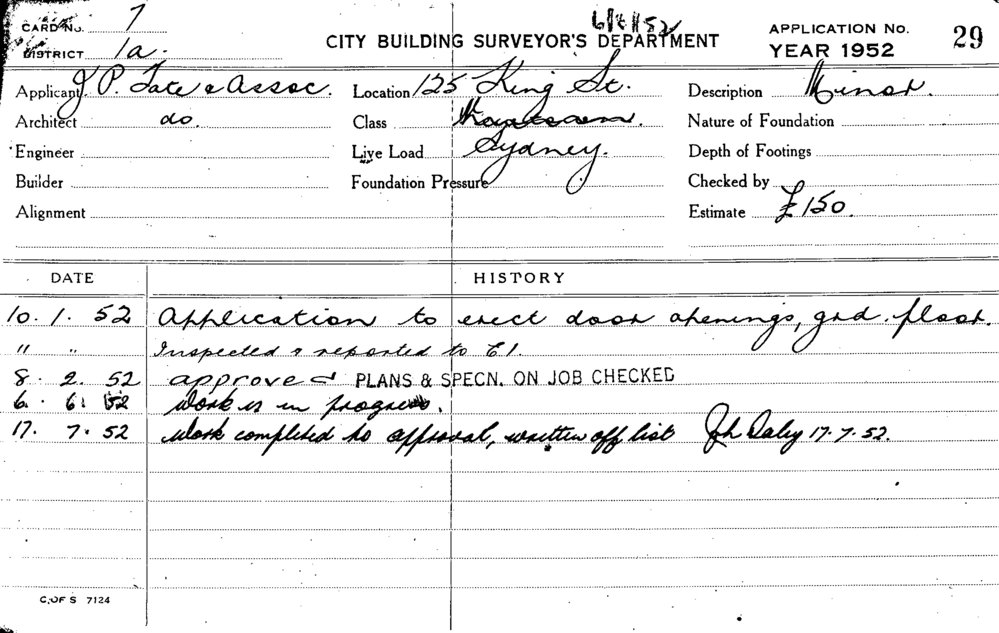 6/8/52
CARD No. 7
DISTRICT 1a.
CITY BUILDING SURVEYOR'S DEPARTMENT
APPLICATION No. 29
YEAR 1952
Applicant J P. Tate & Assoc. Location 125 King St. Description Minor.
Architect do. Class Nature of Foundation
Engineer Live Load Sydney. Depth of Footings
Builder Foundation Pressure Checked by
Alignment Estimate £150.
DATE HISTORY
10. 1. 52 Application to erect door openings, grd. floor.
" " Inspected & reported to E1.
8. 2. 52 approved PLANS & SPECN. ON JOB CHECKED
6. 6. 52 Work is in progress.
17. 7. 52 Work completed to approval, written off list Jh Daley 17.7.52.
C. OF S 7124